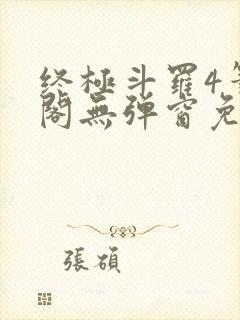 終極斗羅4
閣無彈窗免
張碩